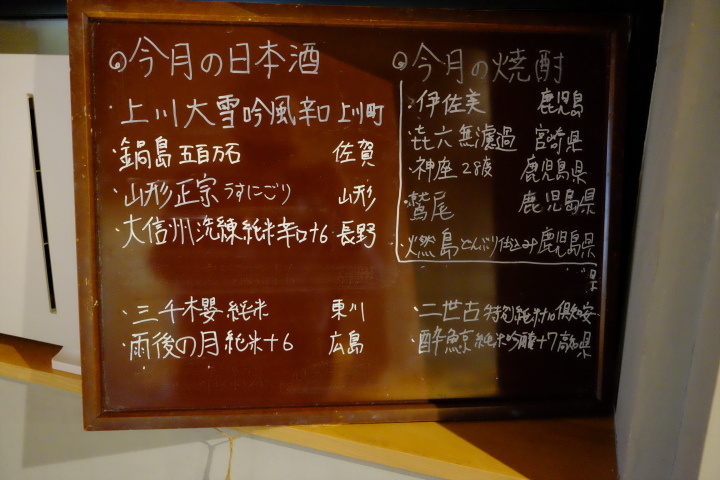 今月の日本酒
・上川大雪吟風辛口 上川町
・鍋島 五百万石 佐賀
・山形正宗 うすにごり 山形
・大信州 洗練純米辛口+6 長野
・三千櫻 純米 東川
・雨後の月 純米+6 広島
今月の焼酎
・伊佐美 鹿児島
・㐂六 無濾過 宮崎県
・神座 28度 鹿児島県
・鷲尾 鹿児島県
・燃島 どんぶり仕込み 鹿児島県
県
・二世古 特別純米+10 倶知安
・酔鯨 純米吟醸+7 高知県